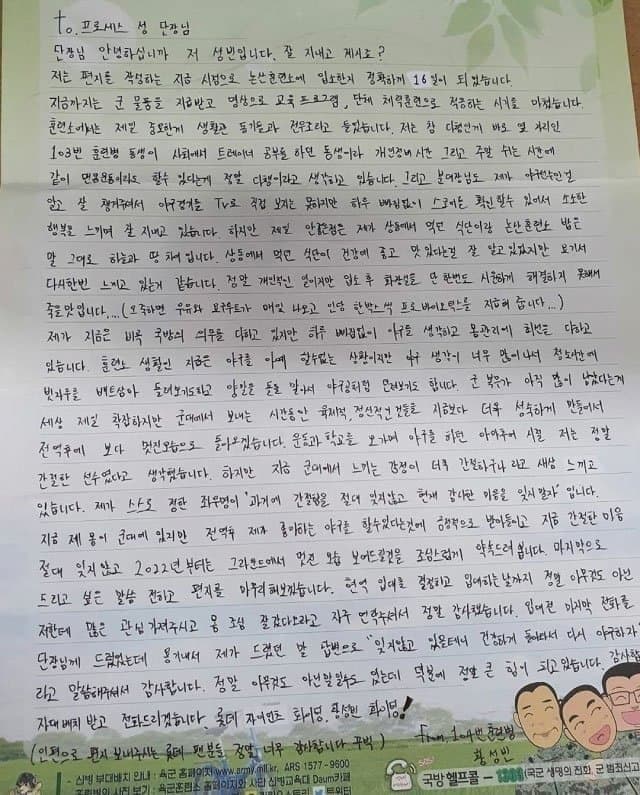 to. 프로세스 성 단장님
단장님 안녕하십니까 저 성빈입니다. 잘 지내고 계시죠?
저는 편지를 작성하는 지금 시점으로 논산훈련소에 입소한지 정확하게 16일이 되었습니다.
지금까지는 군 물품을 지급받고 영상으로 교육 프로그램, 단체 체력훈련으로 적응하는 시기를 마쳤습니다.
훈련소에서는 제일 중요한게 생활관 동기들과 전우조라고 들었습니다. 저는 참 다행인게 바로 옆 자리인
103번 훈련병 동생이 사회에서 트레이너 공부를 하던 동생이라 개인정비시간 그리고 주말 쉬는 시간에
같이 맨몸운동이라도 할수 있다는게 정말 다행이라고 생각하고 있습니다. 그리고 분대장님도 제가 야구선수인걸
알고 잘 챙겨주셔서 야구경기를 TV로 직접 보지는 못하지만 하루 빠짐없이 스코어를 확인할수 있어서 소소한
행복을 느끼며 잘 지내고 있습니다. 하지만 제일 안좋은점은 제가 상동에서 먹던 식단이랑 논산훈련소 밥은
말 그대로 하늘과 땅 차이 입니다. 상동에서 먹던 식단이 건강에 좋고 맛있다는걸 잘 알고 있었지만 여기서
다시한번 느끼고 있는거 같습니다. 정말 개인적인 일이지만 입소 후 화장실을 단 한번도 시원하게 해결하지 못해서
죽을맛입니다....(오죽하면 우유와 요구르트가 매일 나오고 인당 한박스씩 프로바이오틱스를 지급해 줍니다...)
제가 지금은 비록 국방의 의무를 다하고 있지만 하루 빠짐없이 야구를 생각하고 몸관리에 최선을 다하고
있습니다. 훈련소 생활인 지금은 야구를 아예 할수없는 상황이지만 야구 생각이 너무 많이나서 청소시간에
빗자루를 배트삼아 돌려보기도하고 양말을 돌돌 말아서 야구공처럼 던져보기도 합니다. 군 복무가 아직 많이 남았다는게
세상 제일 막막하지만 군대에서 보내는 시간동안 육체적, 정신적인것들을 지금보다 더욱 성숙하게 만들어서
전역후에 보다 멋진모습으로 돌아오겠습니다. 운동과 학교를 오가며 야구를 하던 아마추어 시절 저는 정말
간절한 선수였다고 생각했습니다. 하지만 지금 군대에서 느끼는 감정이 더욱 간절하구나 라고 새삼 느끼고
있습니다. 제가 스스로 정한 좌우명이 '과거에 간절함을 절대 잊지않고 현재 감사한 마음을 잊지말자' 입니다.
지금 제 몸이 군대에 있지만 전역후 제가 좋아하는 야구를 할수있다는것에 긍정적으로 받아들이고 지금 간절한 마음
절대 잊지않고 2022년부터는 그라운드에서 멋진 모습 보여드릴것을 조심스럽게 약속드려 봅니다. 마지막으로
드리고 싶은 말씀 전하고 편지를 마무리해보겠습니다. 현역 입대를 결정하고 입대하는날까지 정말 아무것도 아닌
저한테 많은 관심 가져주시고 몸 조심 잘갔다오라고 자주 연락주셔서 정말 감사했습니다. 입대전 마지막 전화를
단장님께 드렸었는데 용기내서 제가 드렸던 말 답변으로 "잊지않고 있을테니 건강하게 돌아와서 다시 야구하자"
라고 말씀해주셔서 감사합니다. 정말 아무것도 아닌말일수도 있는데 덕분에 정말 큰 힘이 되고있습니다. 감사합
자대배치 받고 전화드리겠습니다. 롯데 자이언츠 화이팅, 황성빈 화이팅!
(인편으로 편지 보내주시는 롯데 팬분들 정말 너무 감사합니다 꾸벅) From. 104번 훈련병
황성빈
· 신병 부대배치 안내 : 육군 홈페이지 www.army.mil.kr, ARS 1577 - 9600
육군훈련소 홈페이지와 사단 신병교육대 Daum카페
트위터
SOS!
국방헬프콜 - 1303 (국군 생명의 전화, 군 범죄신고